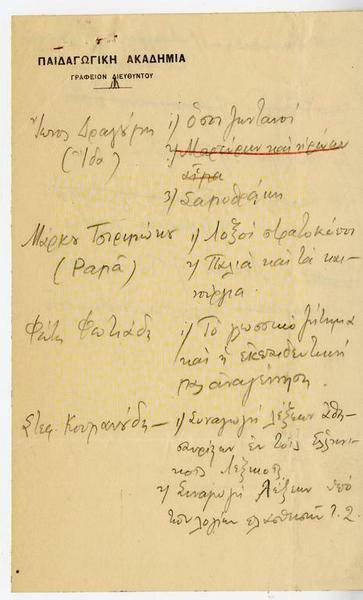 ΠΑΙΔΑΓΩΓΙΚΗ ΑΚΑΔΗΜΙΑ
ΓΡΑΦΕΙΟΝ ΔΙΕΥΘΥΝΤΟΥ
Ἴωνος Δραγούμη 1) Ὅσοι ζωντανοί
(Ἴδα) 2) Μαρτύρων και ηρώων
αἷμα
3) Σαμοθράκη
Μάρκου Τσιριμώκου 1) Λοξοί στρατοκόποι
(Ραμᾶ) 2) Παλιά και τά και-
νούργια.
Φώτη Φωτιάδη 1) Τό γλωσσικό ζήτημα
και ἡ ἐκπαιδευτική
μας ἀναγέννηση.
Στεφ. Κουμανούδη – 1) Συναγωγή λέξεων ἀθη-
σαυρίστων ἐν τοῖς ἑλληνι-
κοῖς λεξικοῖς
2) Συναγωγή λέξεων ὑπό
τῶν λογίων